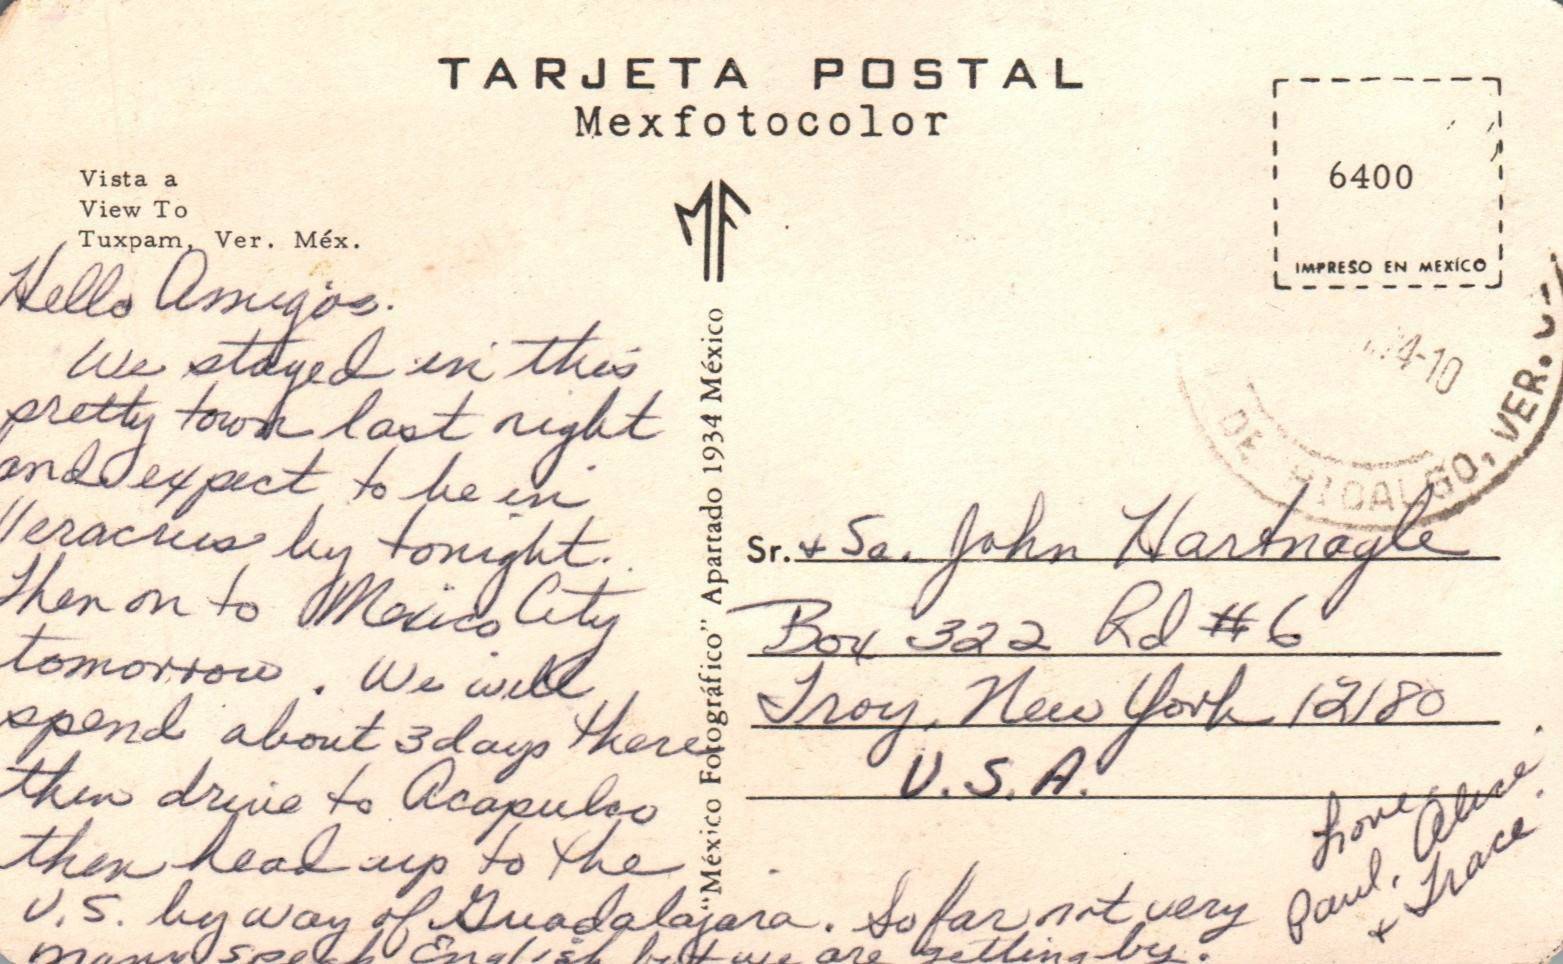 TARJETA POSTAL
Mexfotocolor
Vista a
View To
Tuxpam, Ver. Méx.
6400
IMPRESO EN MEXÍCO
DE HIDALGO, VER.
74-10
"México Fotográfico" Apartado 1934 México
Hello Amigos.
We stayed in this
pretty town last night
and expect to be in
Veracrus by tonight.
Then on to Mexico City
tomorrow. We will
spend about 3 days there
then drive to Acapulco
then head up to the
U.S. by way of Guadalajara. So far not very
many speak English but we are getting by.
Love,
Paul, Alice
+ Trace.
Sr. + Sa. John Hartnagle
Box 322 Rd #6
Troy, New York 12180
U.S.A.